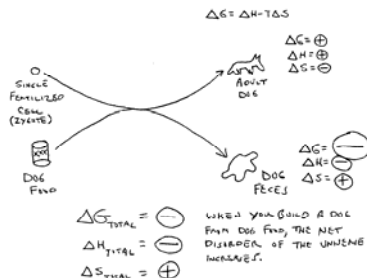 ΔG = ΔH-TΔS
SINGLE
FERTILIZED
CELL
(ZYGOTE)
DOG
FOOD
ADULT
DOG
ΔG = +
ΔH = +
ΔS = -
DOG
FECES
ΔG = -
ΔH = -
ΔS = +
ΔG TOTAL = -
ΔH TOTAL = -
ΔS TOTAL = +
WHEN YOU BUILD A DOG
FROM DOG FOOD, THE NET
DISORDER OF THE UNIVERSE
INCREASES.